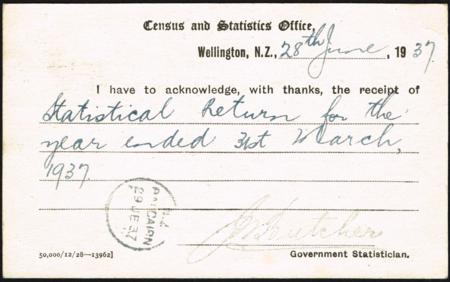 Census and Statistics Office,
Wellington, N.Z., 28th June, 1937.
I have to acknowledge, with thanks, the receipt of
Statistical Return for the
year ended 31st March,
1937.
29 JE 37
Butcher
Government Statistician.
50,000/12/28—13962]